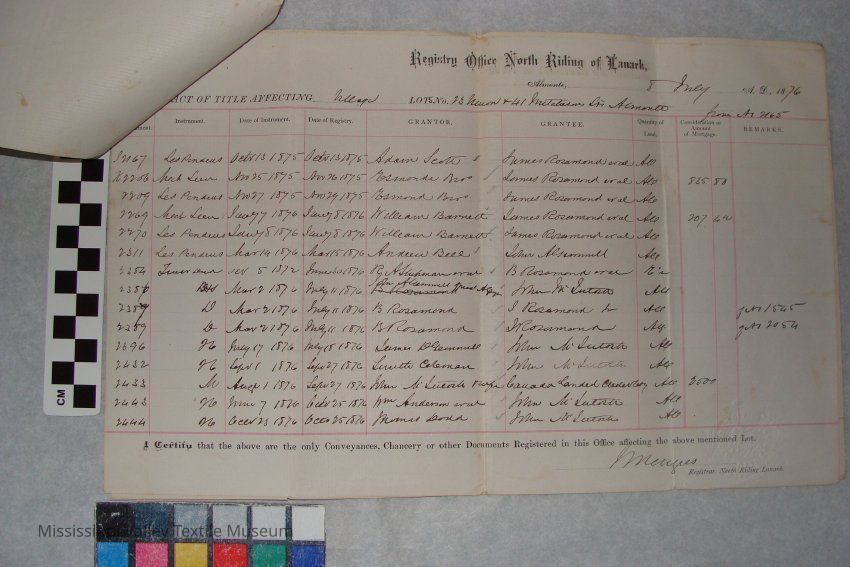 Registry Office North Riding of Lanark,
Almonte, 8 July A. D. 1876
ACT OF TITLE AFFECTING Village LOTS No. 23 & 41 Almonte
from No 2165
Instrument. Date of Instrument. Date of Registry. GRANTOR, GRANTEE. Quantity of Land. Consideration or Amount of Mortgage. REMARKS.
2167 Lis Pendens Oct 13 1875 Oct 13 1875 Adam Scott James Rosamond et al All
2206 Mech Lien Nov 25 1875 Nov 26 1875 Esmonde Bros James Rosamond et al All 835 88
2209 Lis Pendens Nov 27 1875 Nov 29 1875 Esmond Bros James Rosamond et al All
2269 Mech Lien Jany 7 1876 Jany 8 1876 William Barnett James Rosamond et al All 207 42
2270 Lis Pendens Jany 8 1876 Jany 8 1876 William Barnett James Rosamond et al All
2311 Lis Pendens Mar 14 1876 Mar 15 1876 Andrew Bell John All
2354 5 1872 June 1876 et al B Rosamond et al
235 Mar 2 1876 July 11 1876 John McIntosh All
Mar 2 1876 July 11 1876 B Rosamond J Rosamond All No 1545
2389 D Mar 2 1876 July 11 1876 B Rosamond J Rosamond All No 2054
2396 July 17 1876 July 18 1876 James D Gemmill John McIntosh All
2432 Sept 1 1876 Sept 27 1876 Coleman John McIntosh All
2433 M Aug 1 1876 Sept 27 1876 John McIntosh Canada Landed Credit Coy All 2500
2443 June 7 1876 Octr 25 1876 Wm Anderson et al John McIntosh All
2444 Octr 23 1876 Octr 25 1876 Thomas Dodd John McIntosh All
I Certify that the above are the only Conveyances, Chancery or other Documents Registered in this Office affecting the above mentioned Lot.
Menzies
Registrar, North Riding Lanark.
CM
Mississippi Valley Textile Museum